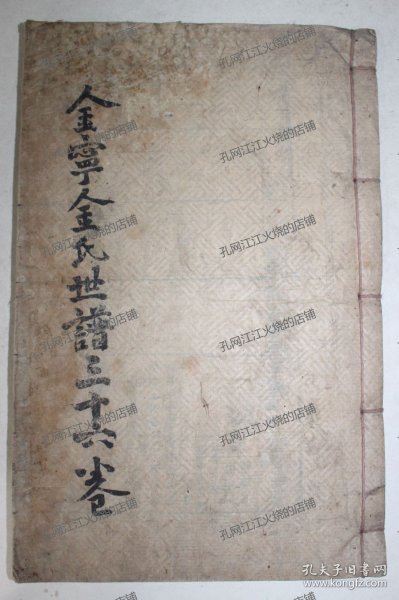 金寧金氏世譜三十六卷
孔网江江火烧的店铺
孔网江江火烧的店铺
孔网江江火烧的店铺
孔网江江火烧的店铺
孔网江江火烧的店铺
孔网江江火烧的店铺
孔网江江火烧的店铺
孔网江江火烧的店铺
孔网江江火烧的店铺
孔网江江火烧的店铺
孔网江江火烧的店铺
孔网江江火烧的店铺
孔夫子旧书网
www.kongfz.com